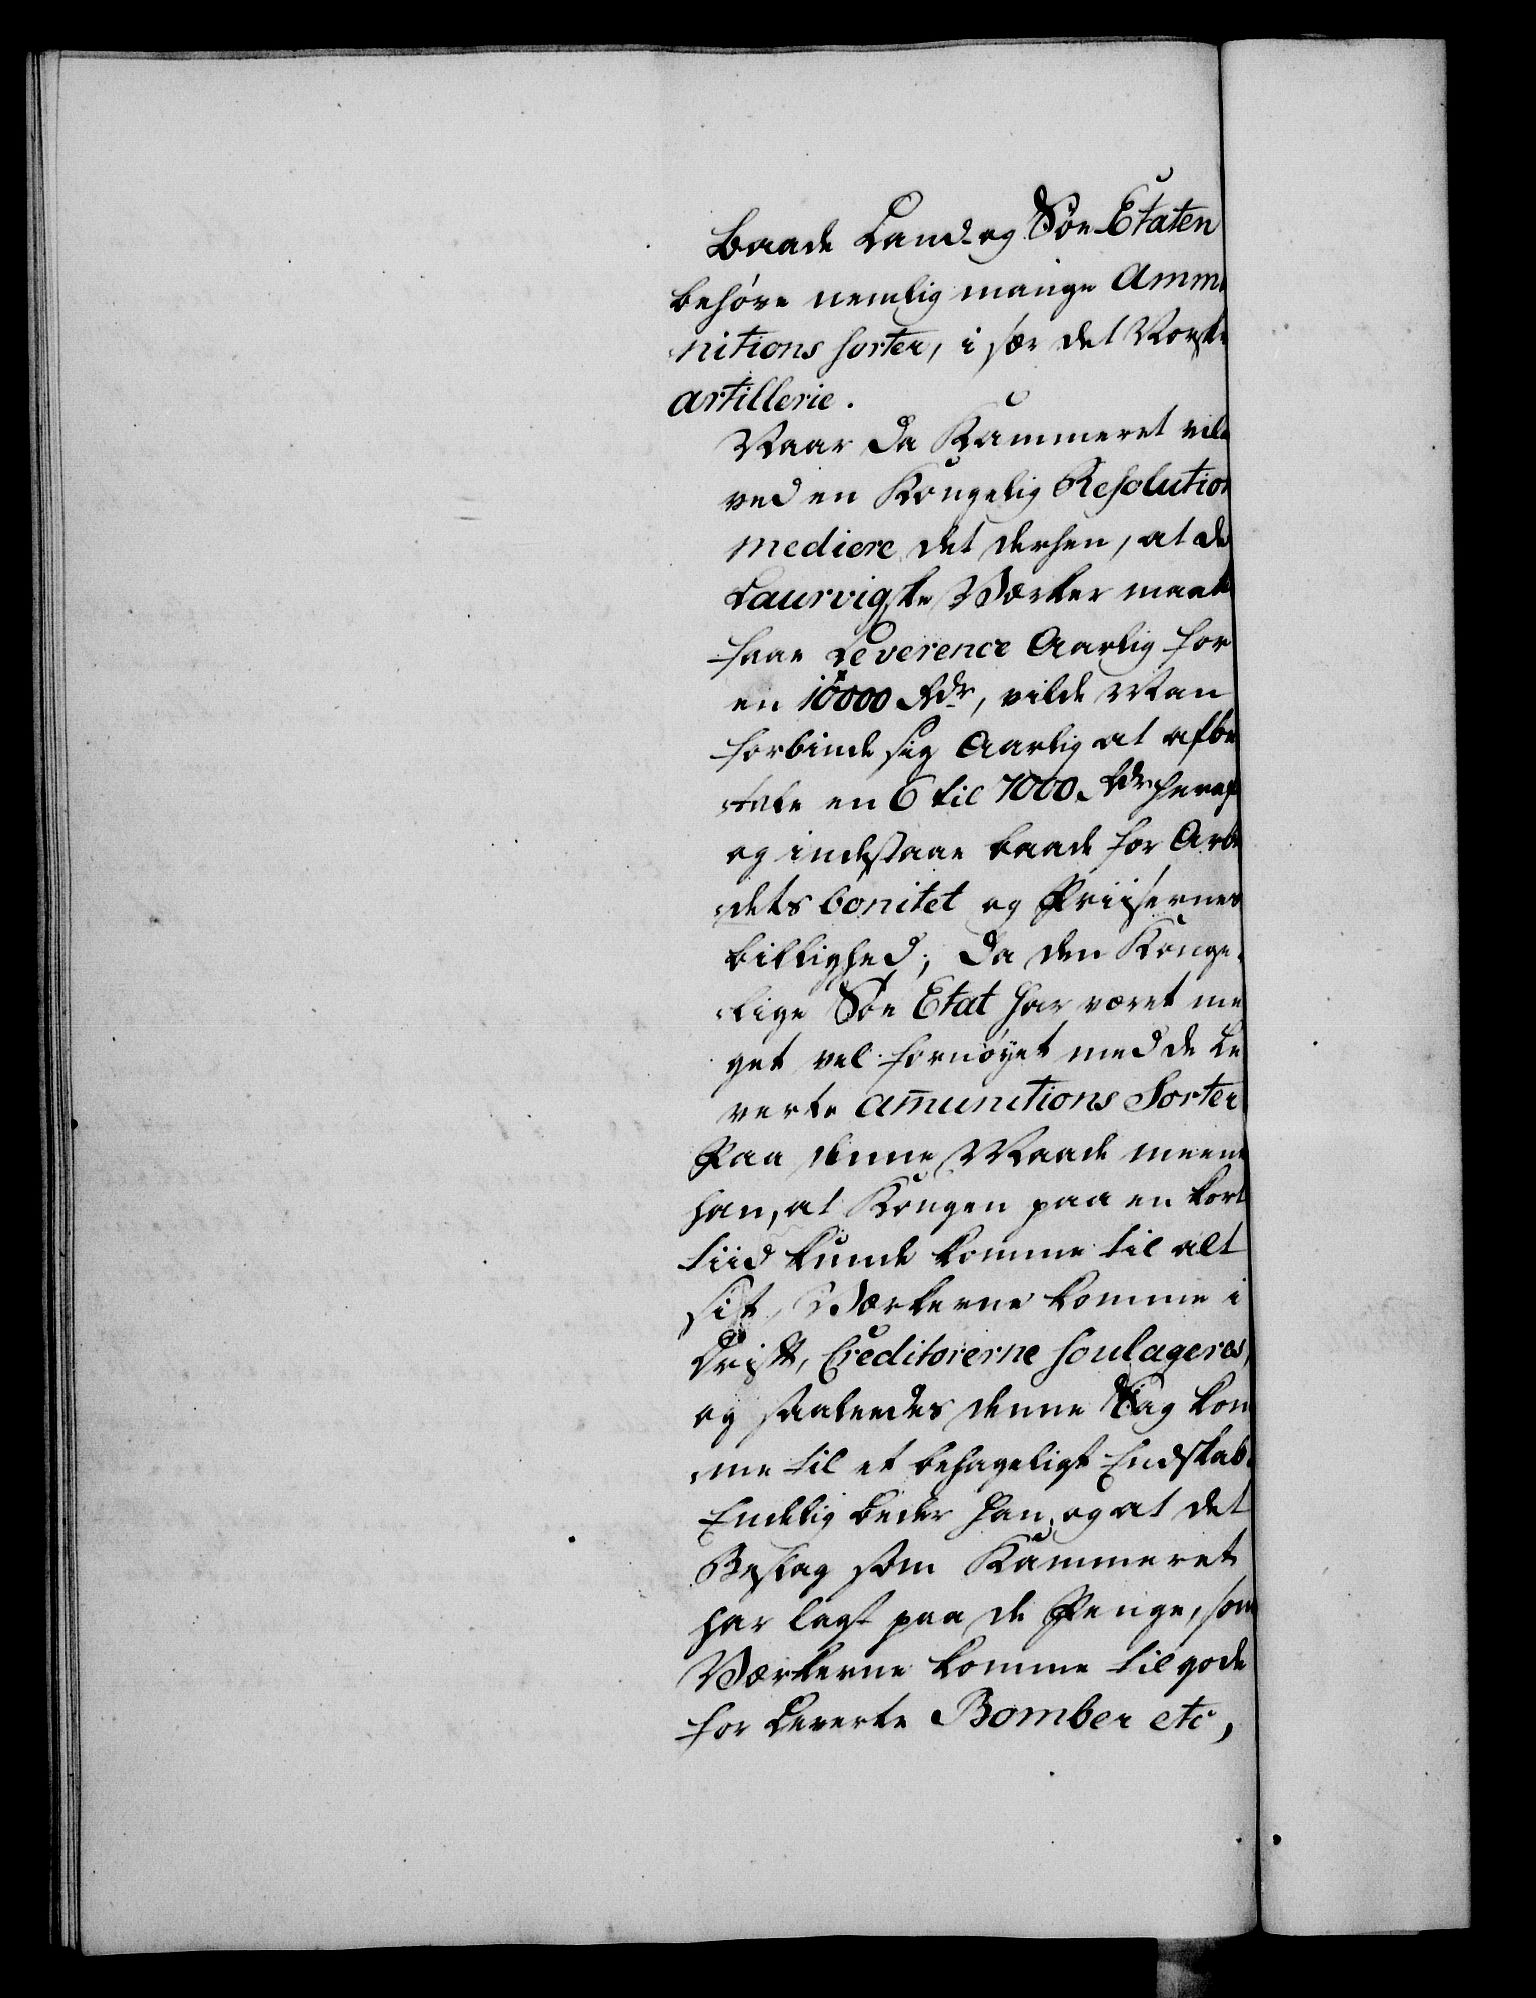 Baade Land- og Söe Etaten
behöve nemlig mange Ammu
nitions sorter, i sær det Norske
artillerie.
Naar da Kammeret vilde
ved en Kongelig Resolution
mediere det derhen, at de
Laurvigske Værker maatte
faae Leverence Aarlig for
en 10000 Rdr, vilde Man
forbinde sig Aarlig at afbe
tale en 6 til 7000 Rdr heraf
og indestaae baade for Arbei
dets bonitet og Priisernes
billighed; da den Konge-
lige Söe Etat har været me
get vel fornöyet med de Le
verte amunitions Sorter
Paa denne Maade meente
han, at Kongen paa en kort
tiid kunde komme til alt
sit, Værkerne komme i
Drift, Creditorerne soulageres,
og saaleedes denne Sag kom
me til et behageligt Endskab.
Endelig beder han, og at det
Beslag som Kammeret
har lagt paa de Penge, som
Værkerne komme tilgode
for Leverte Bomber etc,